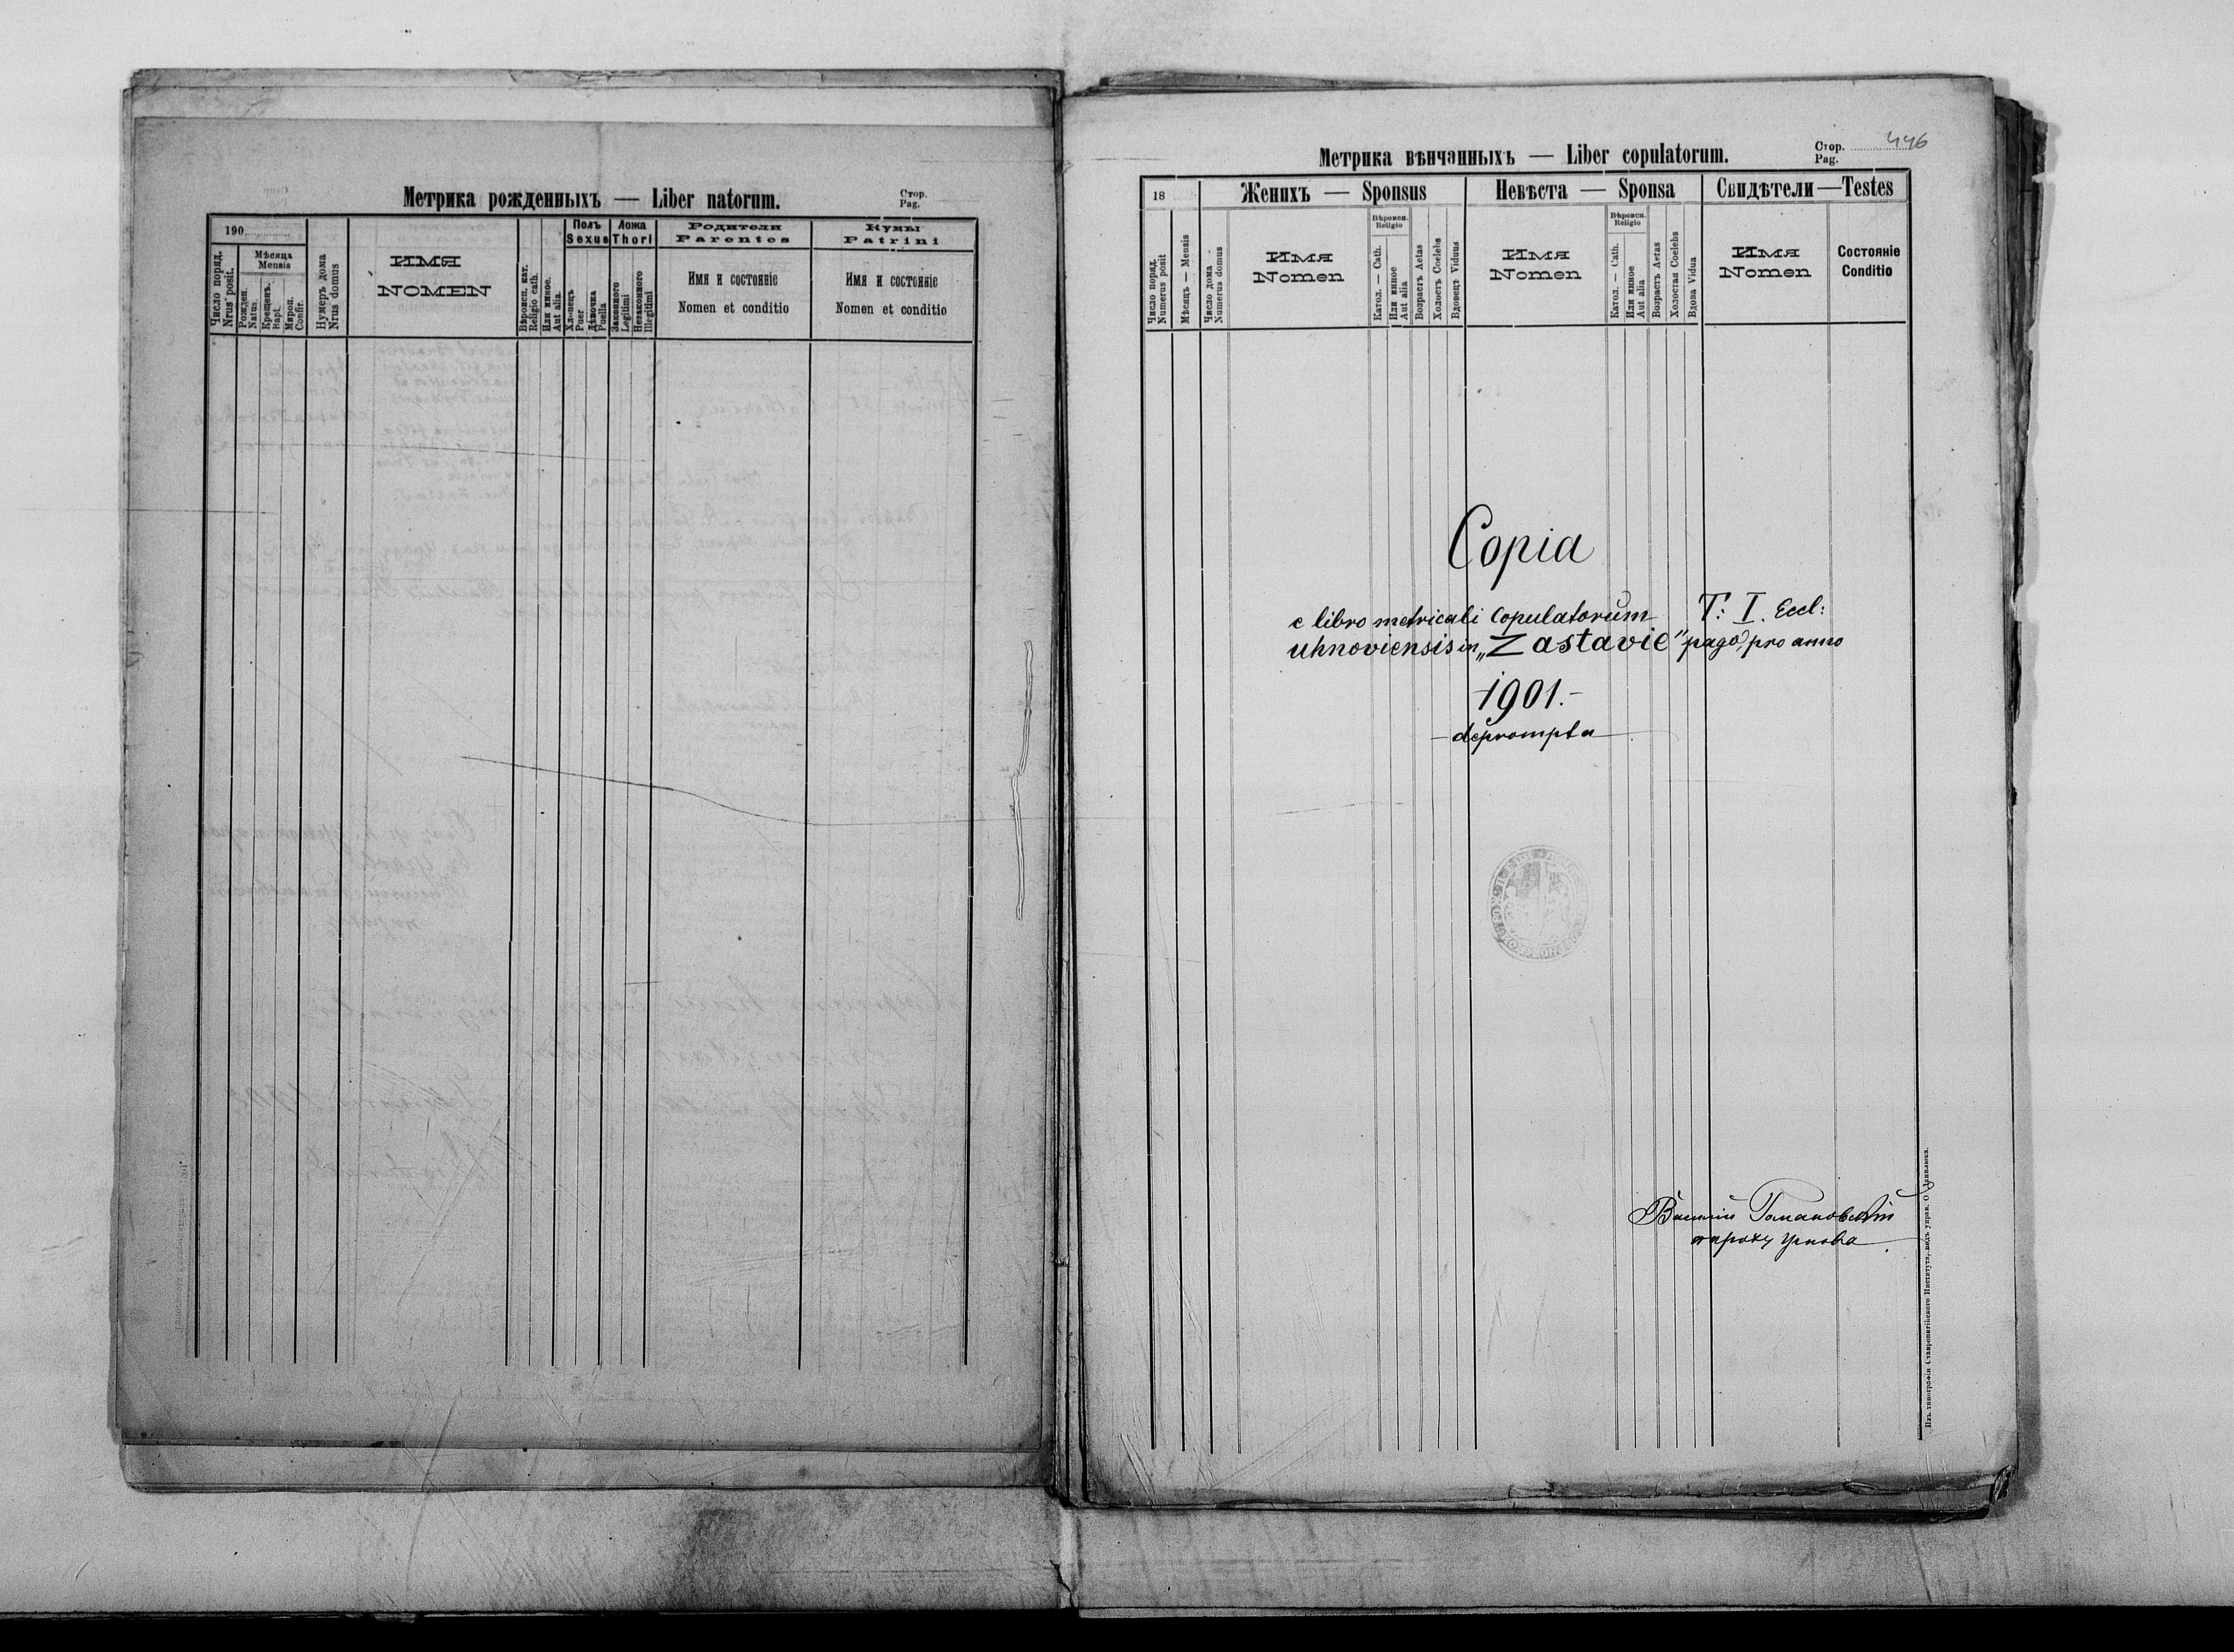 Метрика рожденныхъ — Liber natorum.
Стор.
Pag.
190
Число поряд.
Nrus posit.
Мѣсяца
Mensis
Рожден.
Natus
Крещенъ.
Bapt.
Миров.
Confir.
Нумеръ дома
Nrus domus
ИМЯ
NOMEN
Вѣроисп. кат.
Religio cath.
Или иное.
Aut alia.
Полъ
Sexus
Хлопецъ
Puer
Дѣвочка
Puella
Ложа
Thori
Законного
Legitimi
Незаконного
Illegitimi
Родители
Parentes
Имя и состояніе
Nomen et conditio
Кумы
Patrini
Имя и состояніе
Nomen et conditio
Метрика вѣнчанныхъ — Liber copulatorum.
Стор.
Pag.
446
18
Число поряд.
Numerus posit
Мѣсяцъ — Mensis
Число дома
Numerus domus
Женихъ — Sponsus
Имя
Nomen
Вѣроисп.
Religio
Катол. — Cath.
Или иное
Aut alia
Возрастъ Aetas
Холостъ Coelebs
Вдовецъ Viduus
Невѣста — Sponsa
Имя
Nomen
Вѣроисп.
Religio
Катол. — Cath.
Или иное
Aut alia
Возрастъ Aetas
Холостая Coelebs
Вдова Vidua
Свидѣтели — Testes
Имя
Nomen
Состояніе
Conditio
Copia
e libro metricali copulatorum T: I. Eccl:
uhnoviensis in „Zastavie" pago, pro anno
1901.-
deprompta
Изъ типографіи Ставропигійского Института, подъ управ.